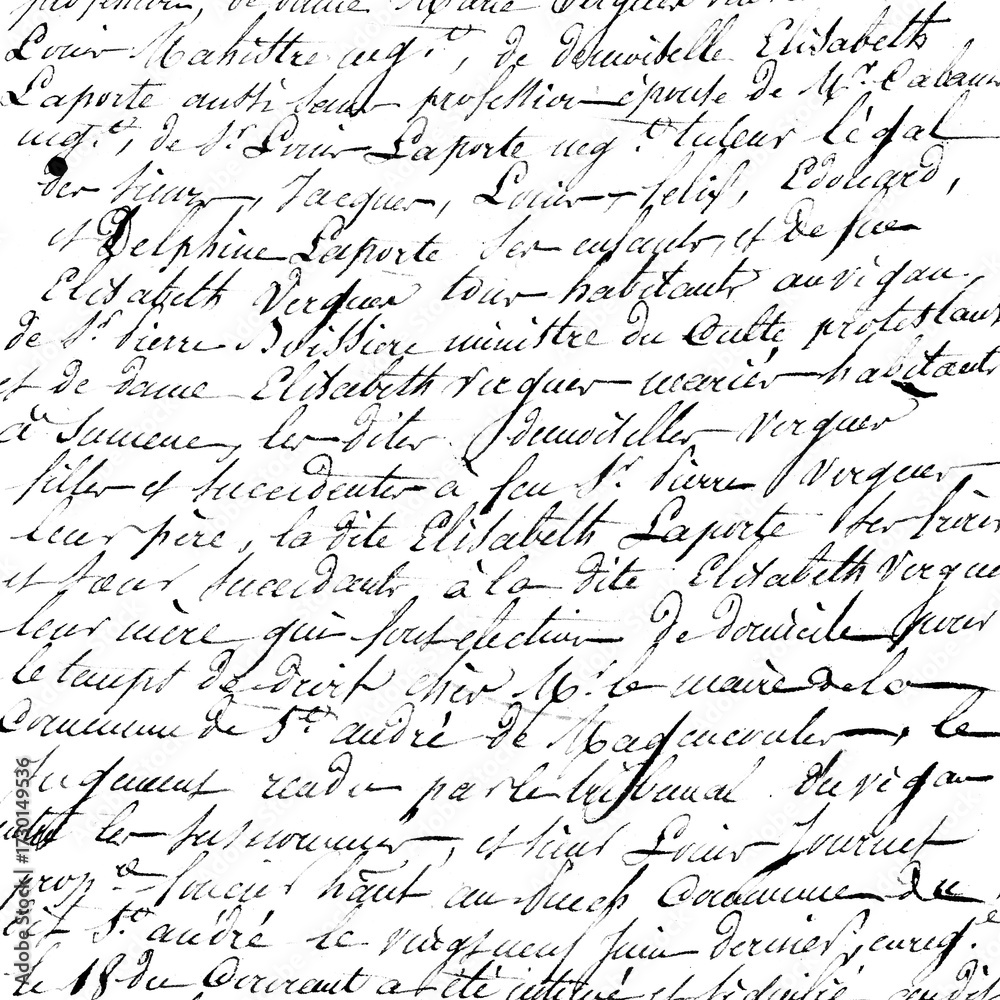 profession, de dame Marie Verquer
Louis Mahistre neg.t, de demoiselle Elisabeth
Laporte aussi sans profession épouse de Mr. Cabanis
neg.t, de Sr. Louis Laporte neg.t tuteur légal
des sieurs, Jacques, Louis, felix, Edouard,
et Delphine Laporte ses enfants, et de feue
Elisabeth Verquer tous habitants auvigan,
de Sr. Pierre Boissiere ministre du Culte protestant
et de dame Elisabeth Verquer mariés habitants
à Sumene, les dites demoiselles Verquer
filles et succedentes à feu Sr. Pierre Verquer
leur père, la dite Elisabeth Laporte ses frères
et sœur succedants à la dite Elisabeth Verquer
leur mère qui font election de domicile pour
le temps de droit chès Mr. le maire de la
Commune de St. andré de Magencoules, le
jugement rendu par le tribunal du vigan
entre les susnommés, et sieur Louis Journet
prop.re foncier haut au Commune du
dit St. andré le vingt neuf juin dernier, enreg.é
le 18 du Courant a été intimé et signifié audit
Adobe Stock | #1730149536